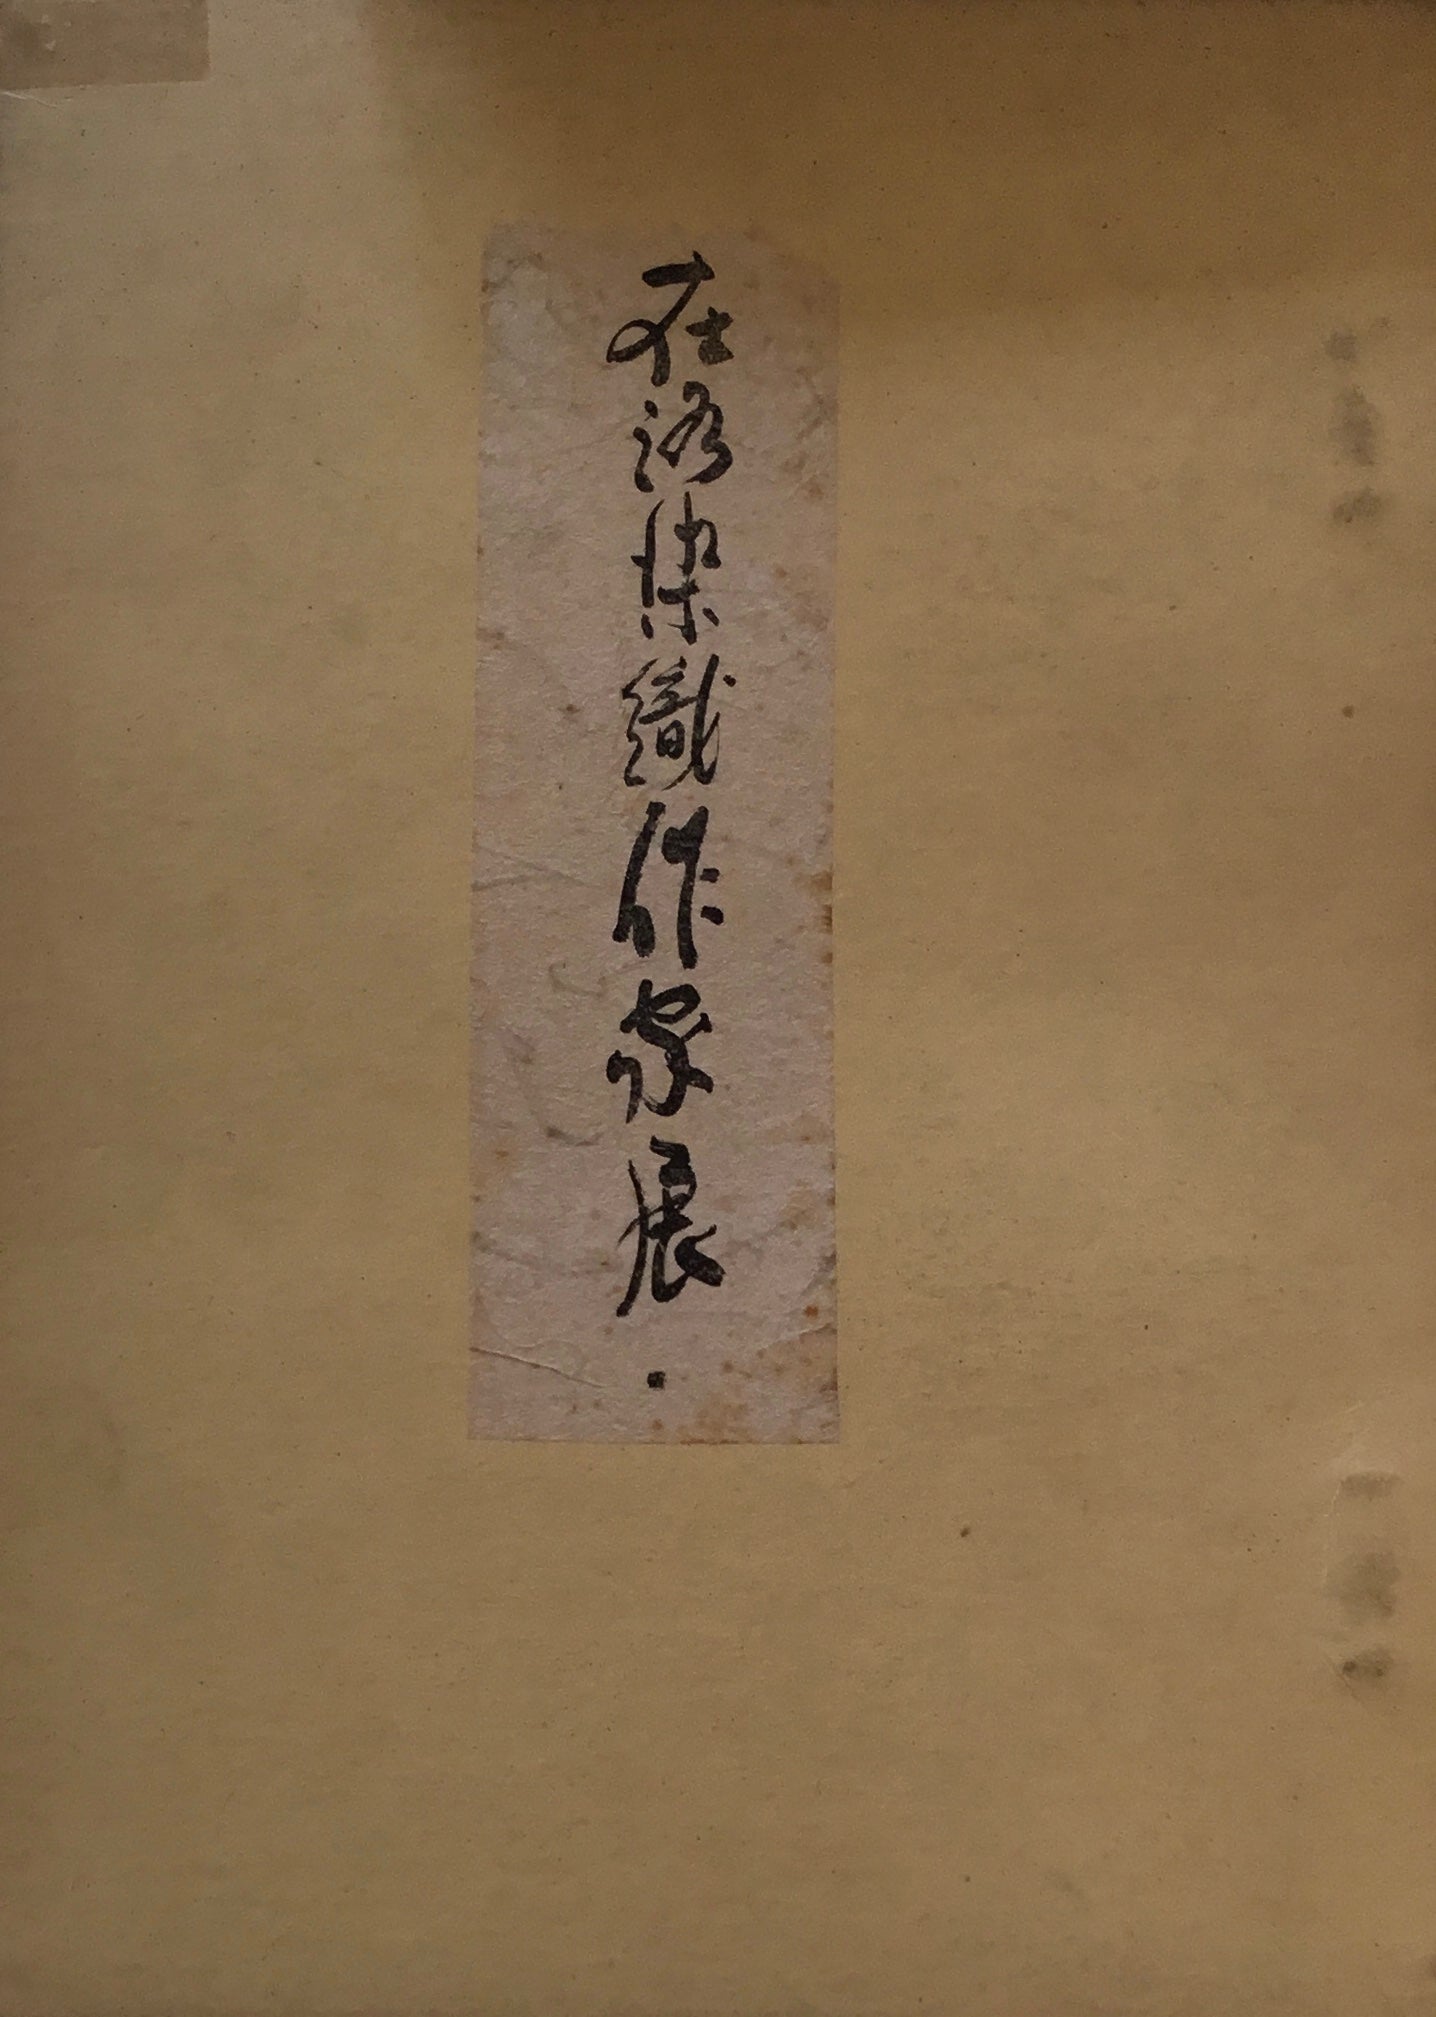 在洛染織作家展.